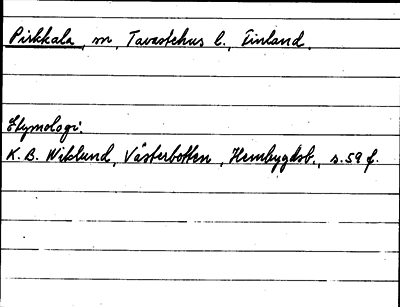 Pirkkala, sn, Tavastehus l., Finland.
Etymologi:
K. B. Wiklund, Västerbotten, Hembygdsb., s. 59 f.